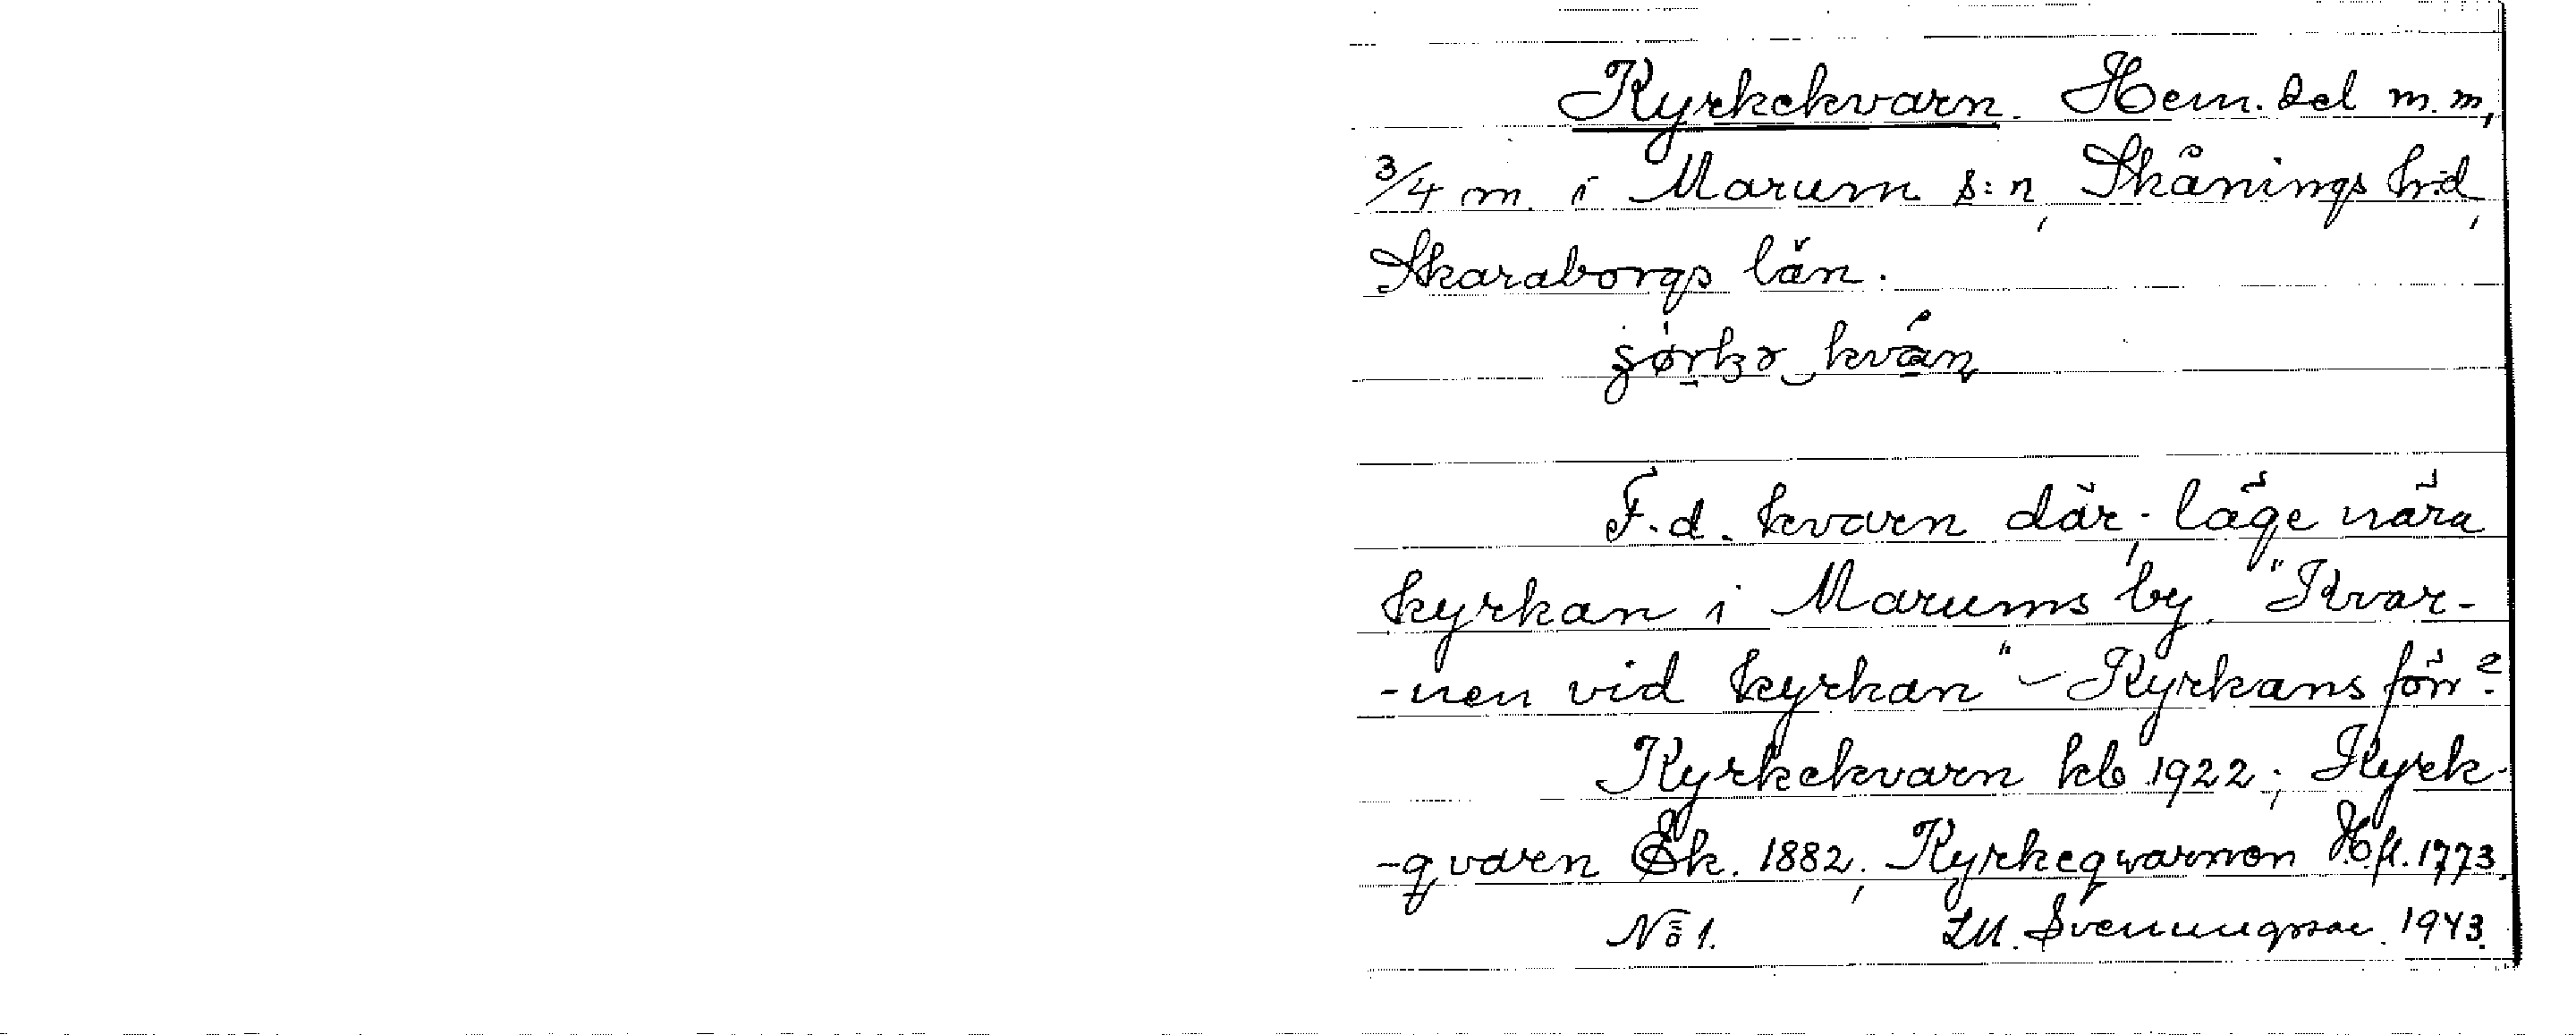 Kyrkekvarn. Hem. del m.m,
3/4 m. i Marum s:n, Skånings hd,
Skaraborgs län.
F.d. kvarn där, läge nära
kyrkan i Marums by. "Kvar-
-nen vid kyrkan" - Kyrkans förr?
Kyrkekvarn kb 1922; Kyrk-
-qvarn Ek. 1882; Kyrkeqwarnen Hfl. 1773.
No 1. LM. Svenungsson 1943.